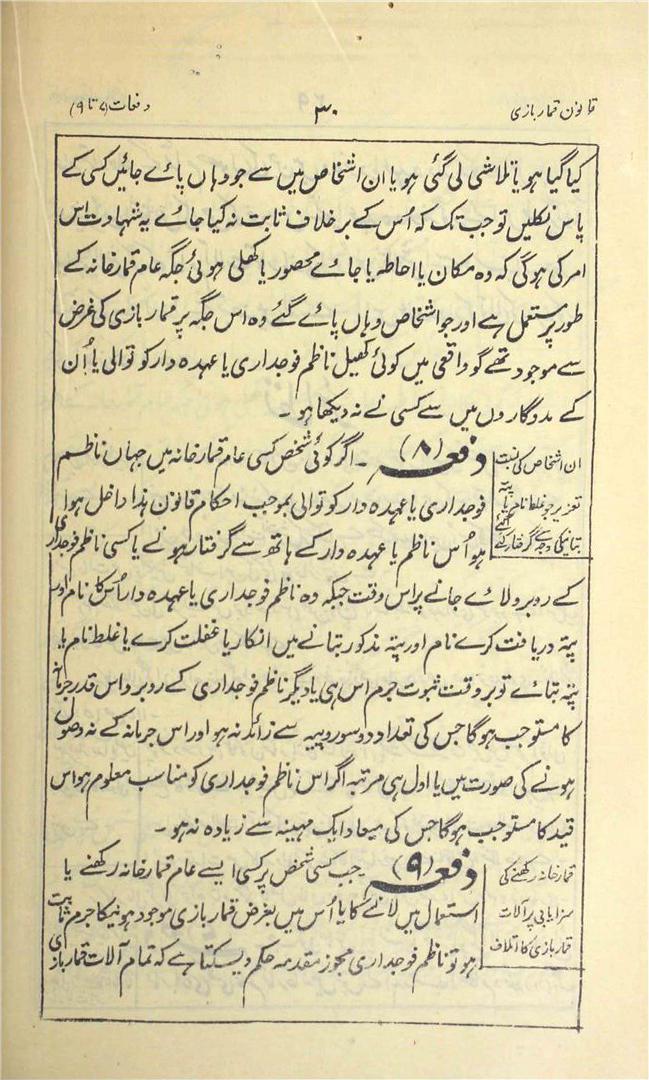 قانون قمار بازی
۳۰
دفعات (۷ تا ۹)
کیا گیا ہو یا تلاشی لی گئی ہو یا ان اشخاص میں سے جو وہاں پاے جائیں کسی کے
پاس نکلیں تو جب تک کہ اُس کے برخلاف ثابت نہ کیا جاے یہ شہادت اس
امر کی ہوگی کہ وہ مکان یا احاطہ یا جاے محصور یا کھلی ہوئی جگہ عام قمار خانہ کے
طور پر مستعمل ہے اور جو اشخاص وہاں پاے گئے وہ اس جگہ پر قمار بازی کی غرض
سے موجود تھے گو واقعی میں کوئی کھیل ناظم فوجداری یا عہدہ دار کوتوالی یا اُن
کے مددگاروں میں سے کسی نے نہ دیکھا ہو ۔
ان اشخاص کی نسبت
تعزیر جو غلط نام یا پتہ
بتانیکی وجہ سے گرفتار کئے گئے
دفعہ (۸) ۔ اگر کوئی شخص کسی عام قمار خانہ میں جہاں ناظم
فوجداری یا عہدہ دار کوتوالی بموجب احکام قانون ہذا داخل ہوا
ہو اُس ناظم یا عہدہ دار کے ہاتھ سے گرفتار ہونے یا کسی ناظم فوجداری
کے روبرو لاے جانے پر اس وقت جبکہ وہ ناظم فوجداری یا عہدہ دار اُس کا نام اور
پتہ دریافت کرے نام اور پتہ مذکور بتانے میں انکار یا غفلت کرے یا غلط نام یا
پتہ بتاے تو بر وقت ثبوت جرم اس ہی یا دیگر ناظم فوجداری کے روبرو اس قدر جرمانہ
کا مستوجب ہوگا جس کی تعداد دو سو روپیہ سے زائد نہ ہو اور اس جرمانہ کے نہ وصول
ہونے کی صورت میں یا اول ہی مرتبہ اگر اس ناظم فوجداری کو مناسب معلوم ہو اس
قید کا مستوجب ہوگا جس کی میعاد ایک مہینہ سے زیادہ نہ ہو ۔
قمار خانہ رکھنے کی
سزایابی پر آلات
قمار بازی کا اتلاف
دفعہ (۹) ۔ جب کسی شخص پر کسی ایسے عام قمار خانہ رکھنے یا
استعمال میں لانے کا یا اُس میں بغرض قمار بازی موجود ہونیکا جرم ثابت
ہو تو ناظم فوجداری مجوز مقدمہ حکم دیسکتا ہے کہ تمام آلات قمار بازی